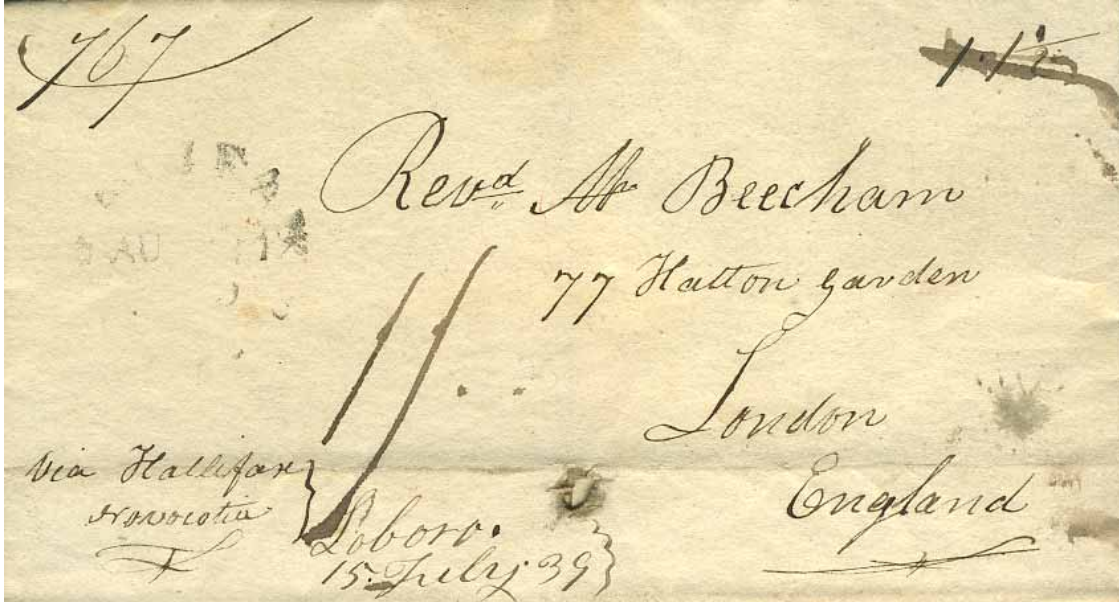 767
1.1½
Revd Mr Beecham
77 Hatton Garden
London
England
11
via Hallifax
Novocotia
Loboro.
15. July 39
AU